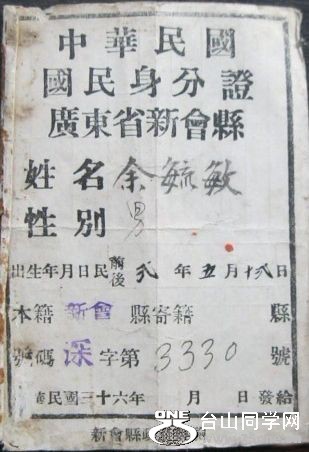 中華民國
國民身分證
廣東省新會縣
姓名余毓敏
性別男
出生年月日民前後 年五月十八日
本籍新會縣寄籍 縣
號碼深字第3330號
民國三十六年 月 日發給
新會縣政
ONE 台山同学网